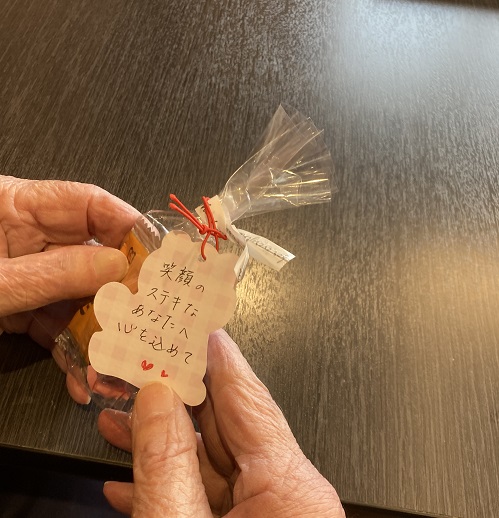 笑顔の
ステキな
あなたへ
心を込めて